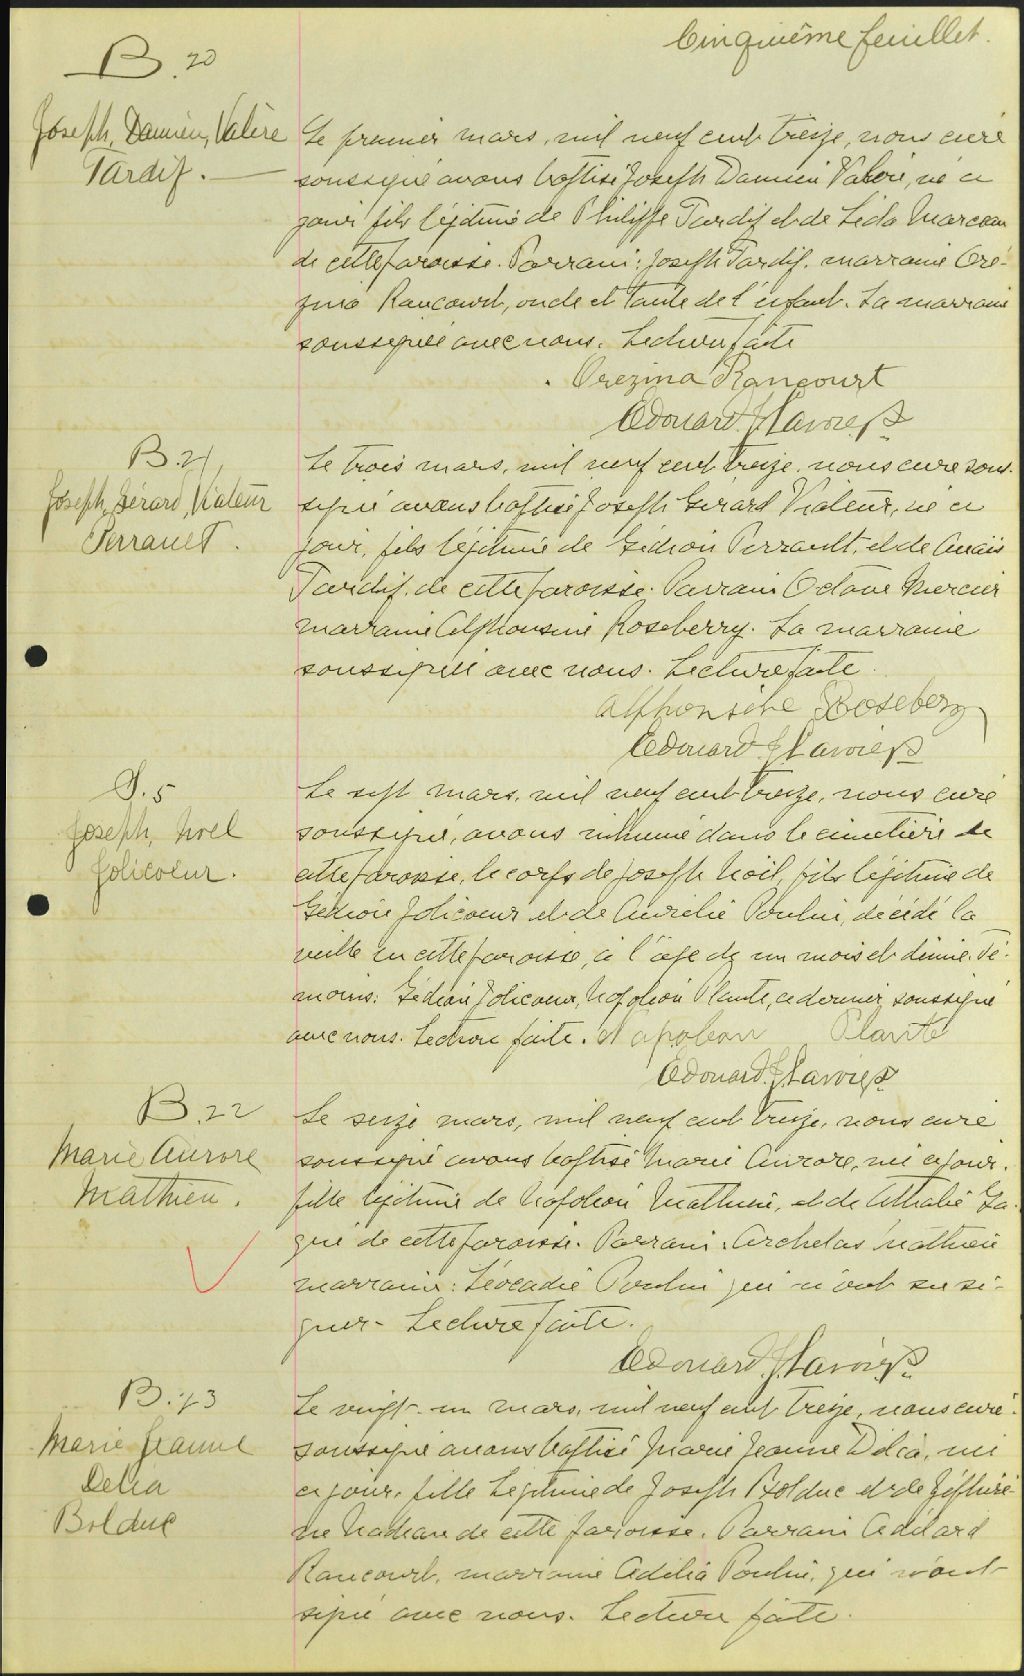 Cinquième feuillet.
B. 20
Joseph, Damien, Valère
Tardif.
Le premier mars, mil neuf cent treize, nous curé
soussigné avons baptisé Joseph Damien Valère, né ce
jour fils légitime de Philippe Tardif et de Léda Marceau
de cette paroisse. Parrain: Joseph Tardif. marraine Oré-
zina Rancourt, oncle et tante de l'enfant. La marraine
soussignée avec nous. Lecture faite
Orezina Rancourt
Edouard J. Lavoie, P
B. 21
Joseph, Gérard, Viateur
Perrault.
Le trois mars, mil neuf cent treize, nous curé sous-
signé avons baptisé Joseph Gérard Viateur, né ce
jour, fils légitime de Gédéon Perrault, et de Anaïs
Tardif, de cette paroisse. Parrain Octave Mercier
marraine Alphonsine Roseberry. La marraine
soussignée avec nous. Lecture faite.
Alphonsine Roseberry
Edouard J. Lavoie P
S. 5
Joseph, Noel
Jolicoeur.
Le sept mars, mil neuf cent treize, nous curé
soussigné, avons inhumé dans le cimetière de
cette paroisse, le corps de Joseph Noël, fils légitime de
Gédéon Jolicoeur et de Aurélie Poulin, décédé la
veille en cette paroisse, à l'âge de un mois et demie. Té-
moins: Gédéon Jolicoeur, Napoléon Plante, ce dernier soussigné
avec nous. Lecture faite. Napoléon Plante
Edouard J. Lavoie P.
B. 22
Marie Aurore
Mathieu.
Le seize mars, mil neuf cent treize, nous curé
soussigné avons baptisé Marie Aurore, née ce jour,
fille légitime de Napoléon Mathieu, et de Athalie Ga-
gné de cette paroisse. Parrain: Archelas Mathieu
marraine: Léocadie Poulin qui n'ont su si-
gner. Lecture faite.
Edouard J. Lavoie, P.
B. 23
Marie Jeanne
Delia
Bolduc
Le vingt-un mars, mil neuf cent treize, nous curé
soussigné avons baptisé Marie Jeanne Délia, née
ce jour, fille légitime de Joseph Bolduc et de Zéphiri-
ne Nadeau de cette paroisse. Parrain Adélard
Rancourt, marraine Adélia Poulin, qui n'ont
signé avec nous. Lecture faite.